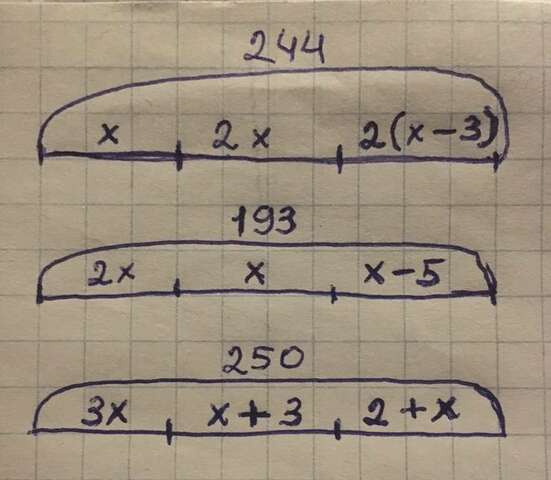 244
x 2x 2(x-3)
193
2x x x-5
250
3x x+3 2+x